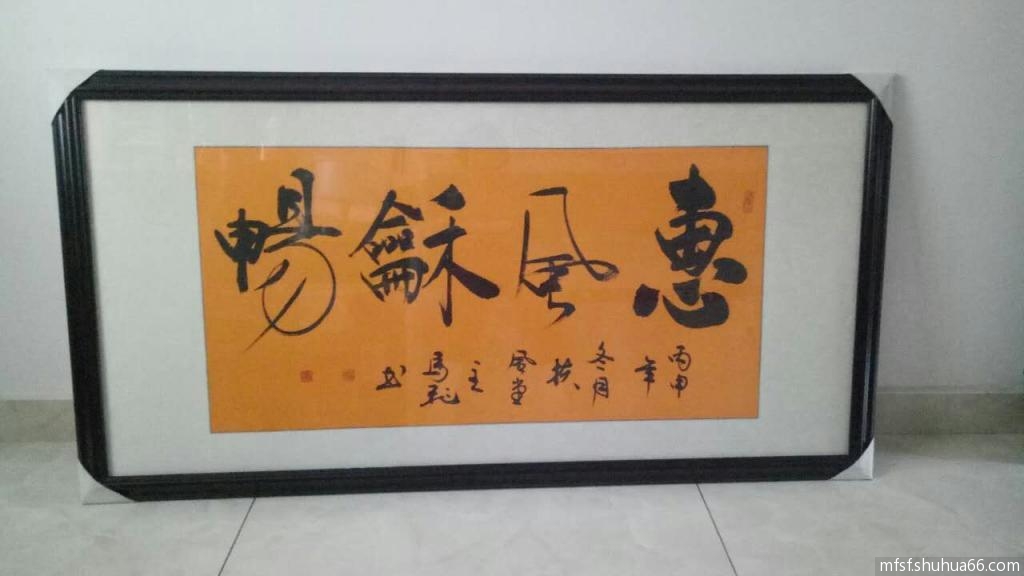 惠風龢暢
丙申
年
冬月
扶
風堂
主
馬
书
mfsfshuhua66.com